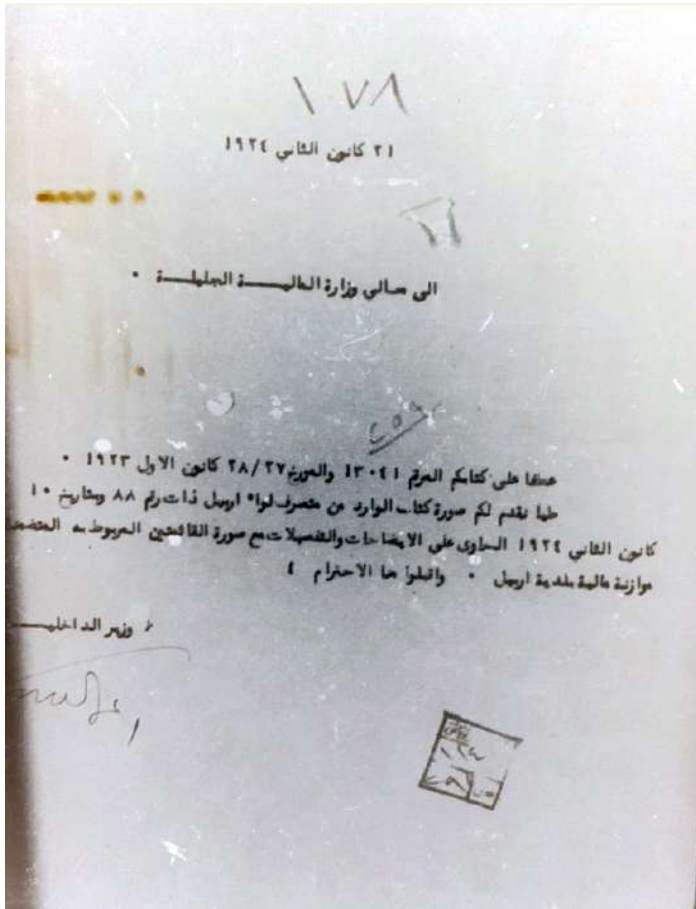 ١٠٧٨
٢١ كانون الثاني ١٩٢٤
الى معالي وزارة الماليـــــة الجليلـــة ٠
عطفا على كتابكم المرقم ١٣٠٤١ والمورخ ٢٨/٢٧ كانون الاول ١٩٢٣ ٠
طيا نقدم لكم صورة كتاب الوارد من متصرف لواء اربيل ذات رقم ٨٨ وبتاريخ ١٠
كانون الثاني ١٩٢٤ الحاوى على الايضاحات والتفصيلات مع صورة القائمتين المربوطه المتضمن
موازنة مالية بلدية اربيل ٠ واقبلوا منا الاحترام
وزير الداخليـــ